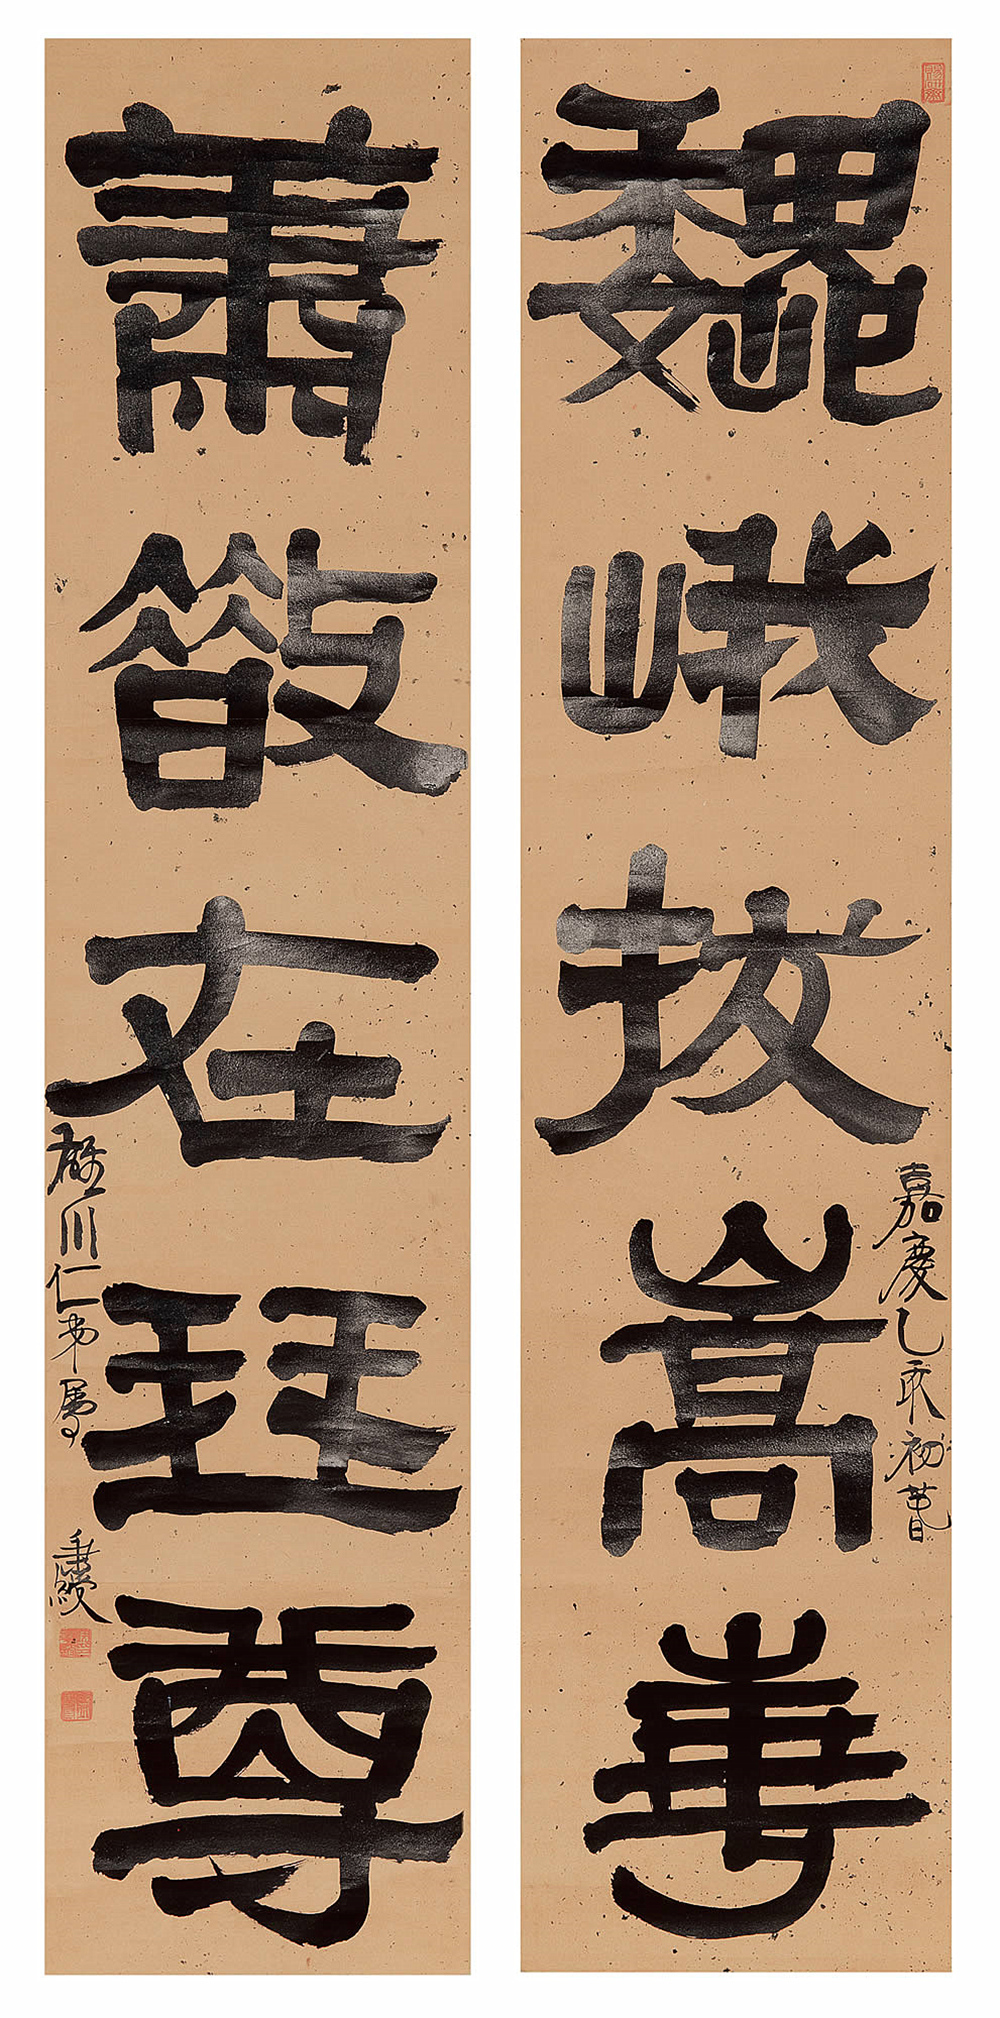 巍峨拔嵩華
嘉慶乙亥初春
蕭散在琴尊
川仁弟屬
秉綬